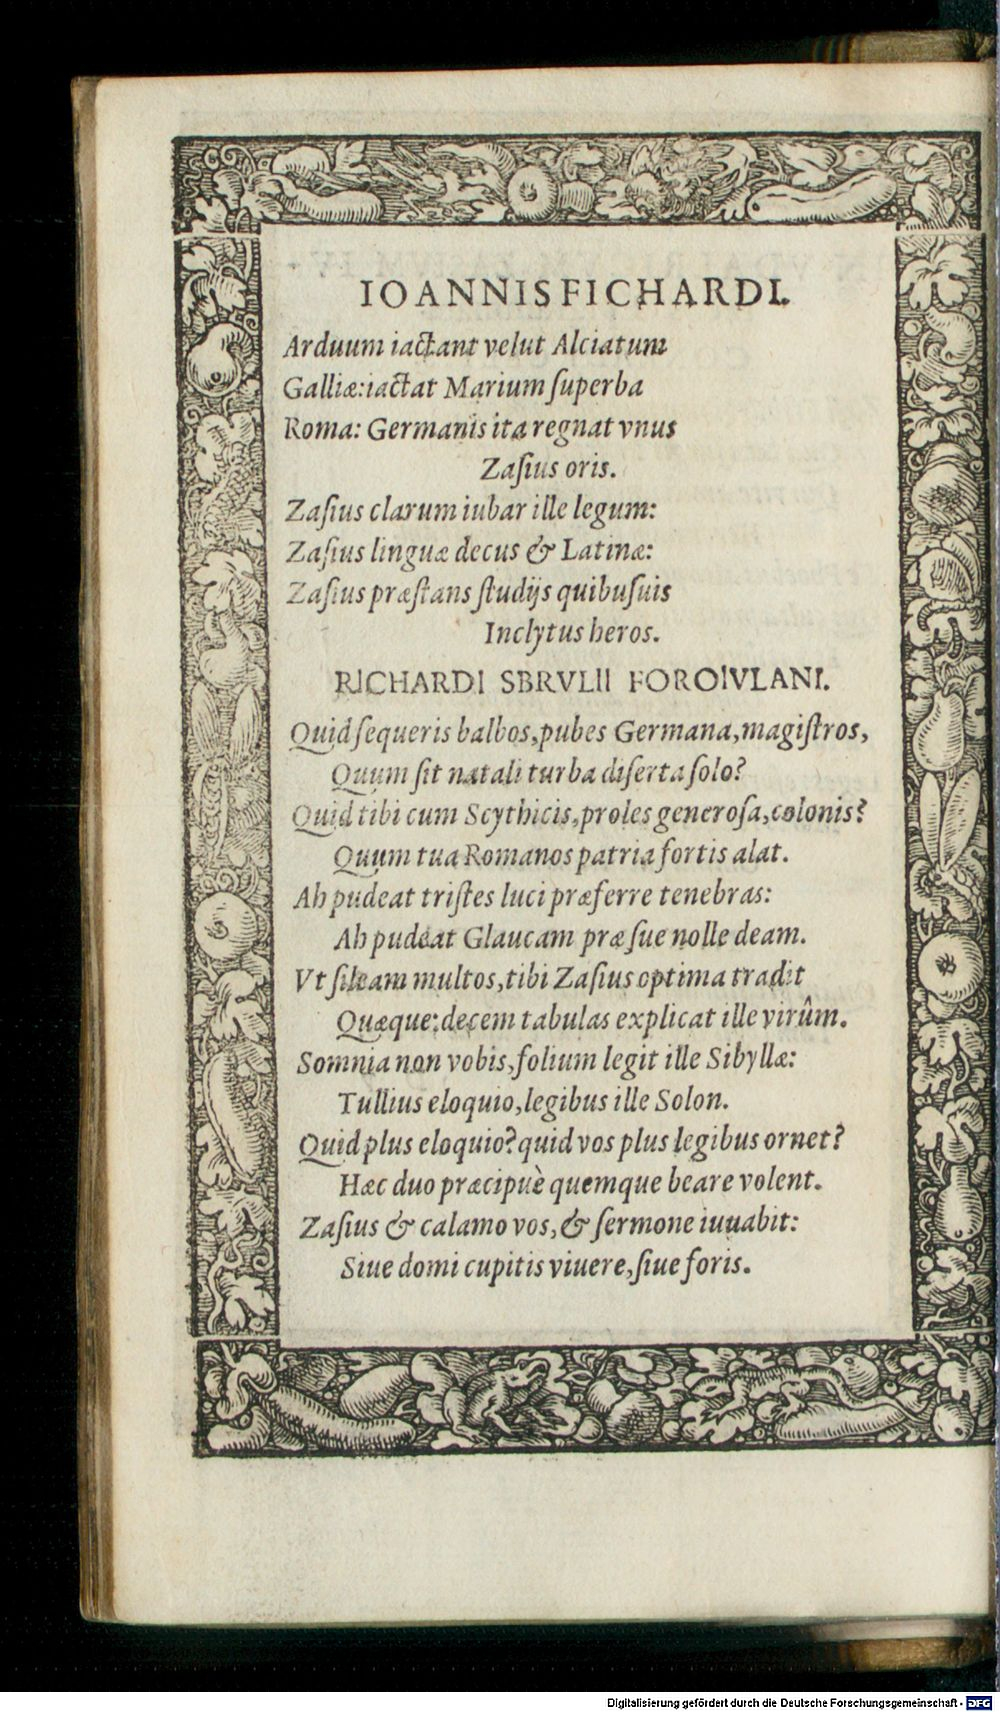 IOANNIS FICHARDI.
Arduum iactant velut Alciatum
Galliæ: iactat Marium ſuperba
Roma: Germanis ita regnat vnus
Zaſius oris.
Zaſius clarum iubar ille legum:
Zaſius linguæ decus & Latinæ:
Zaſius præſtans ſtudijs quibuſuis
Inclytus heros.
RICHARDI SBRVLII FOROIVLANI.
Quid ſequeris balbos, pubes Germana, magiſtros,
Quum ſit natali turba diſerta ſolo?
Quid tibi cum Scythicis, proles generoſa, colonis?
Quum tua Romanos patria fortis alat.
Ah pudeat triſtes luci præferre tenebras:
Ah pudeat Glaucam præ ſue nolle deam.
Vt ſileam multos, tibi Zaſius optima tradit
Quæque: decem tabulas explicat ille virûm.
Somnia non vobis, folium legit ille Sibyllæ:
Tullius eloquio, legibus ille Solon.
Quid plus eloquio? quid vos plus legibus ornet?
Hæc duo præcipuè quemque beare volent.
Zaſius & calamo vos, & ſermone iuuabit:
Siue domi cupitis viuere, ſiue foris.
Digitalisierung gefördert durch die Deutsche Forschungsgemeinschaft - DFG